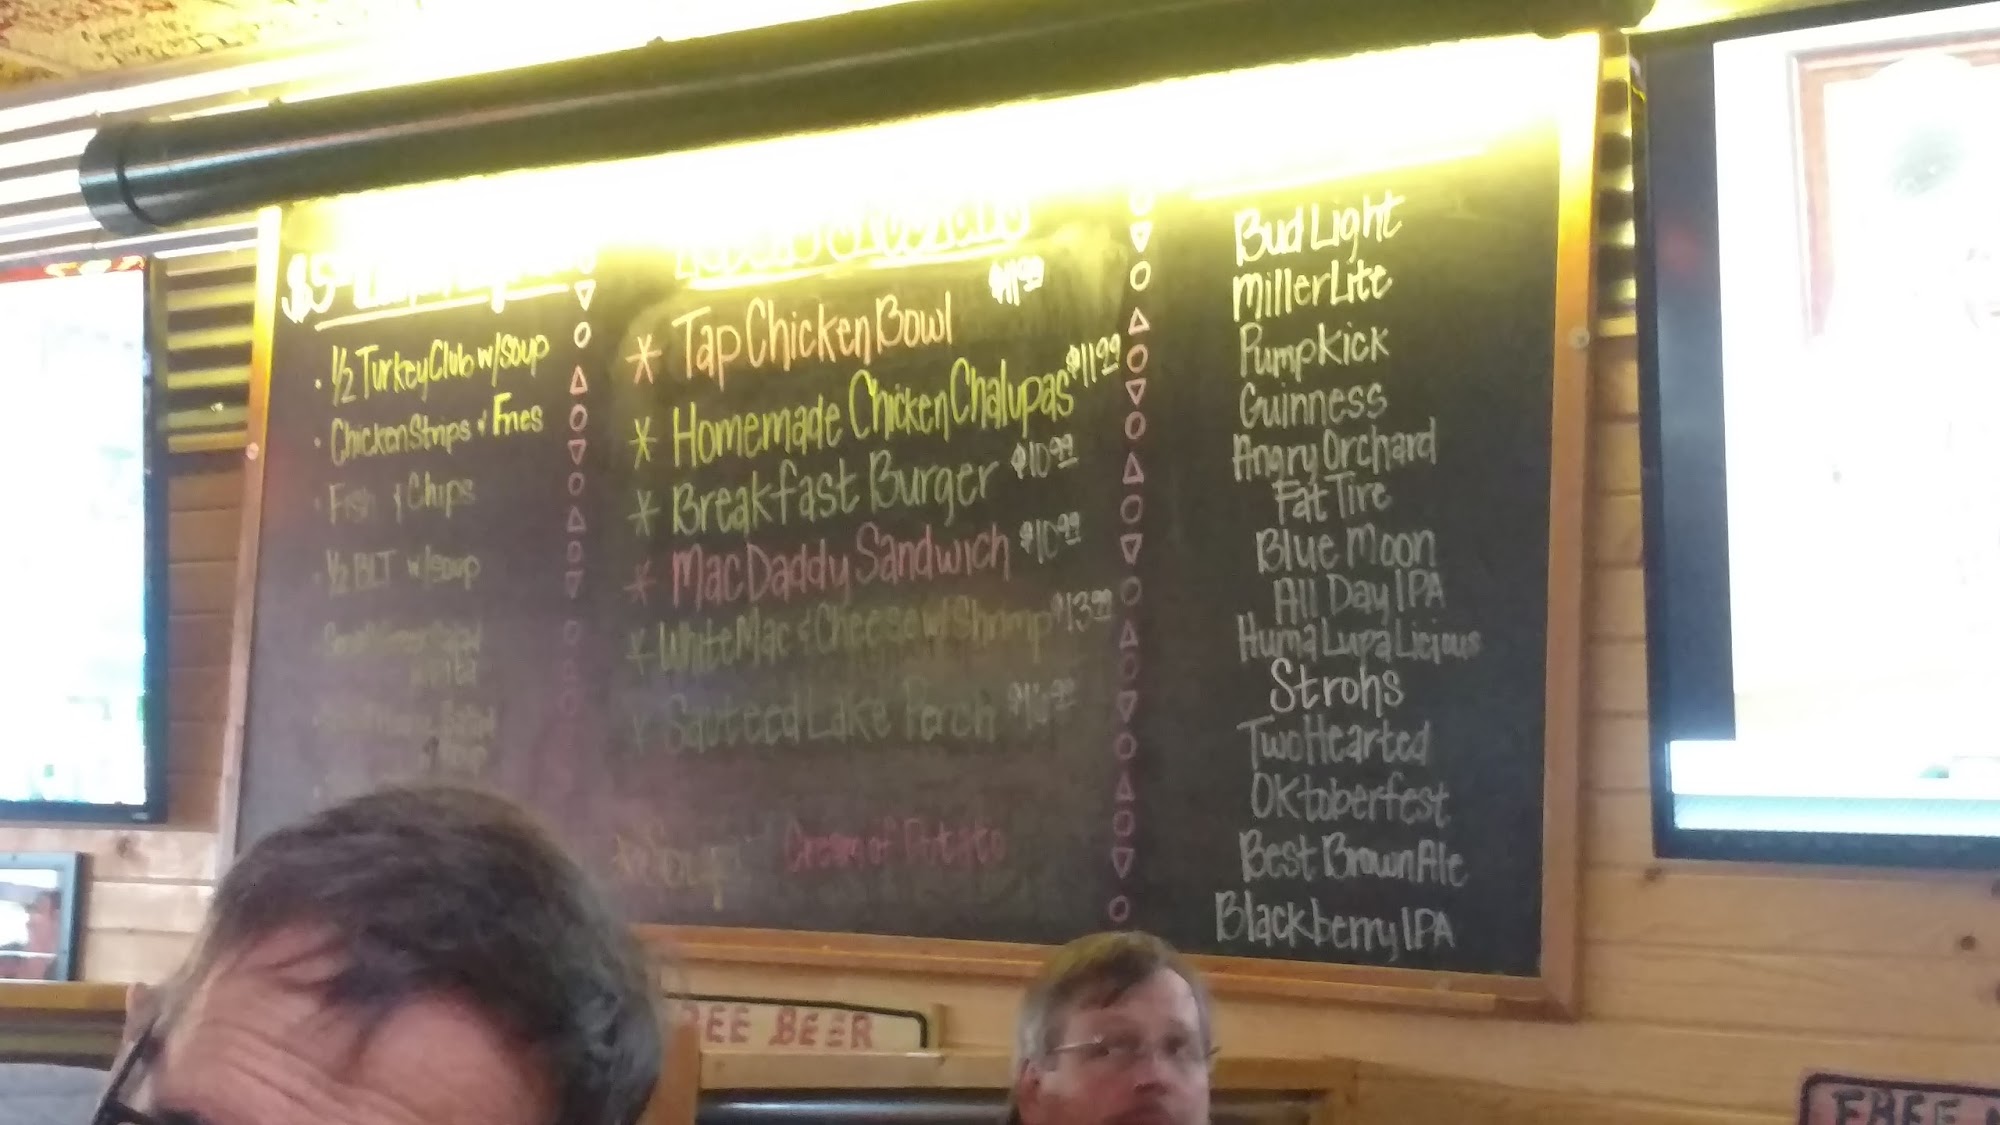 $5
· 1/2 Turkey Club w/soup
· Chicken Strips & Fries
· Fish & Chips
· 1/2 BLT w/soup
* Tap Chicken Bowl $11.99
* Homemade Chicken Chalupas $11.99
* Breakfast Burger $10.99
* Mac Daddy Sandwich $10.99
* White Mac & Cheese w/Shrimp $13.99
* Sauteed Lake Perch
Cream of Potato
Bud Light
Miller Lite
Pumpkick
Guinness
Angry Orchard
Fat Tire
Blue Moon
All Day IPA
HumaLupaLicious
Strohs
Two Hearted
Oktoberfest
Best Brown Ale
Blackberry IPA
BEER
FREE